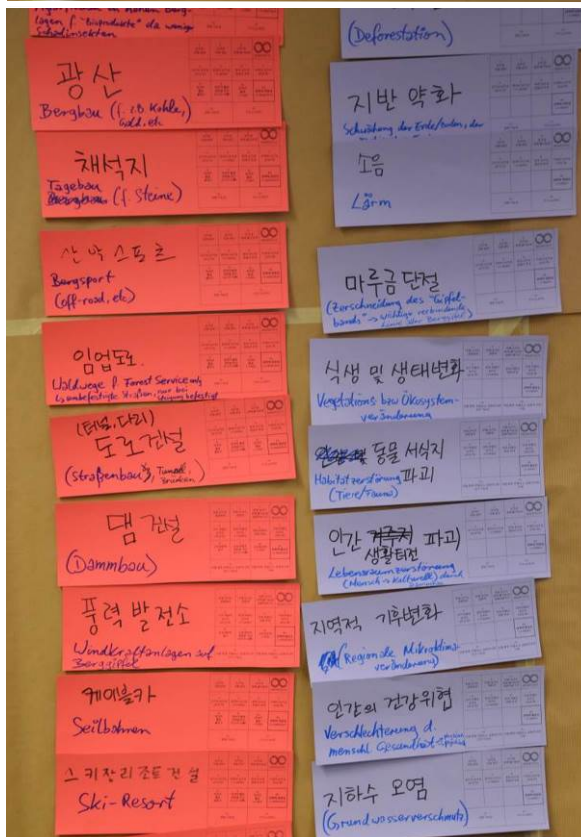 lagen f. "Bioprodukte" da wenige
Schadinsekten
광산
Bergbau (f. z.B Kohle,
Gold, etc
채석지
Tagebau
(f. Steine)
산악스포츠
Bergsport
(off-road, etc)
임업도로
Waldwege f. Forest Service
(터널, 다리)
도로건설
(Straßenbau, Tunnel,
Brücken
댐 건설
(Dammbau)
풍력 발전소
Windkraftanlagen auf
Berggipfel
케이블카
Seilbahnen
스키장리조트건설
Ski-Resort
(Deforestation)
지반 약화
Schwächung der Erde/Bodens, der
소음
Lärm
마루금단절
(Zerschneidung des "Gipfel-
bands" -> wichtige verbindende
식생 및 생태변화
Vegetations bzw Ökosystem-
veränderung
동물 서식지
파괴
Habitatzerstörung
(Tiere/Fauna)
인간 파괴
생활터전
Lebensraumzerstörung
지역적 기후변화
(Regionale Mikroklima-
veränderung)
인간의 건강위협
Verschlechterung d.
menschl Gesundheit
지하수 오염
(Grundwasserverschmutz)